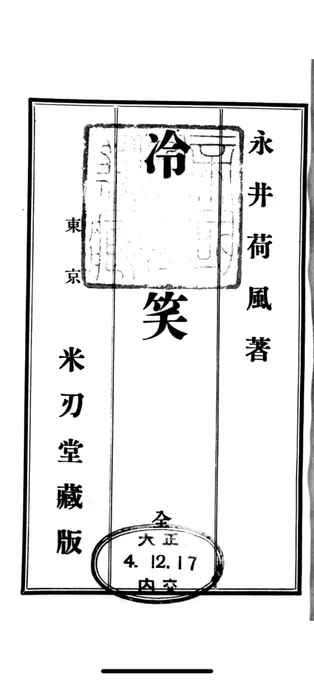 永井荷風著
冷笑
全
東京
米刃堂藏版
大正
4.12.17
内交